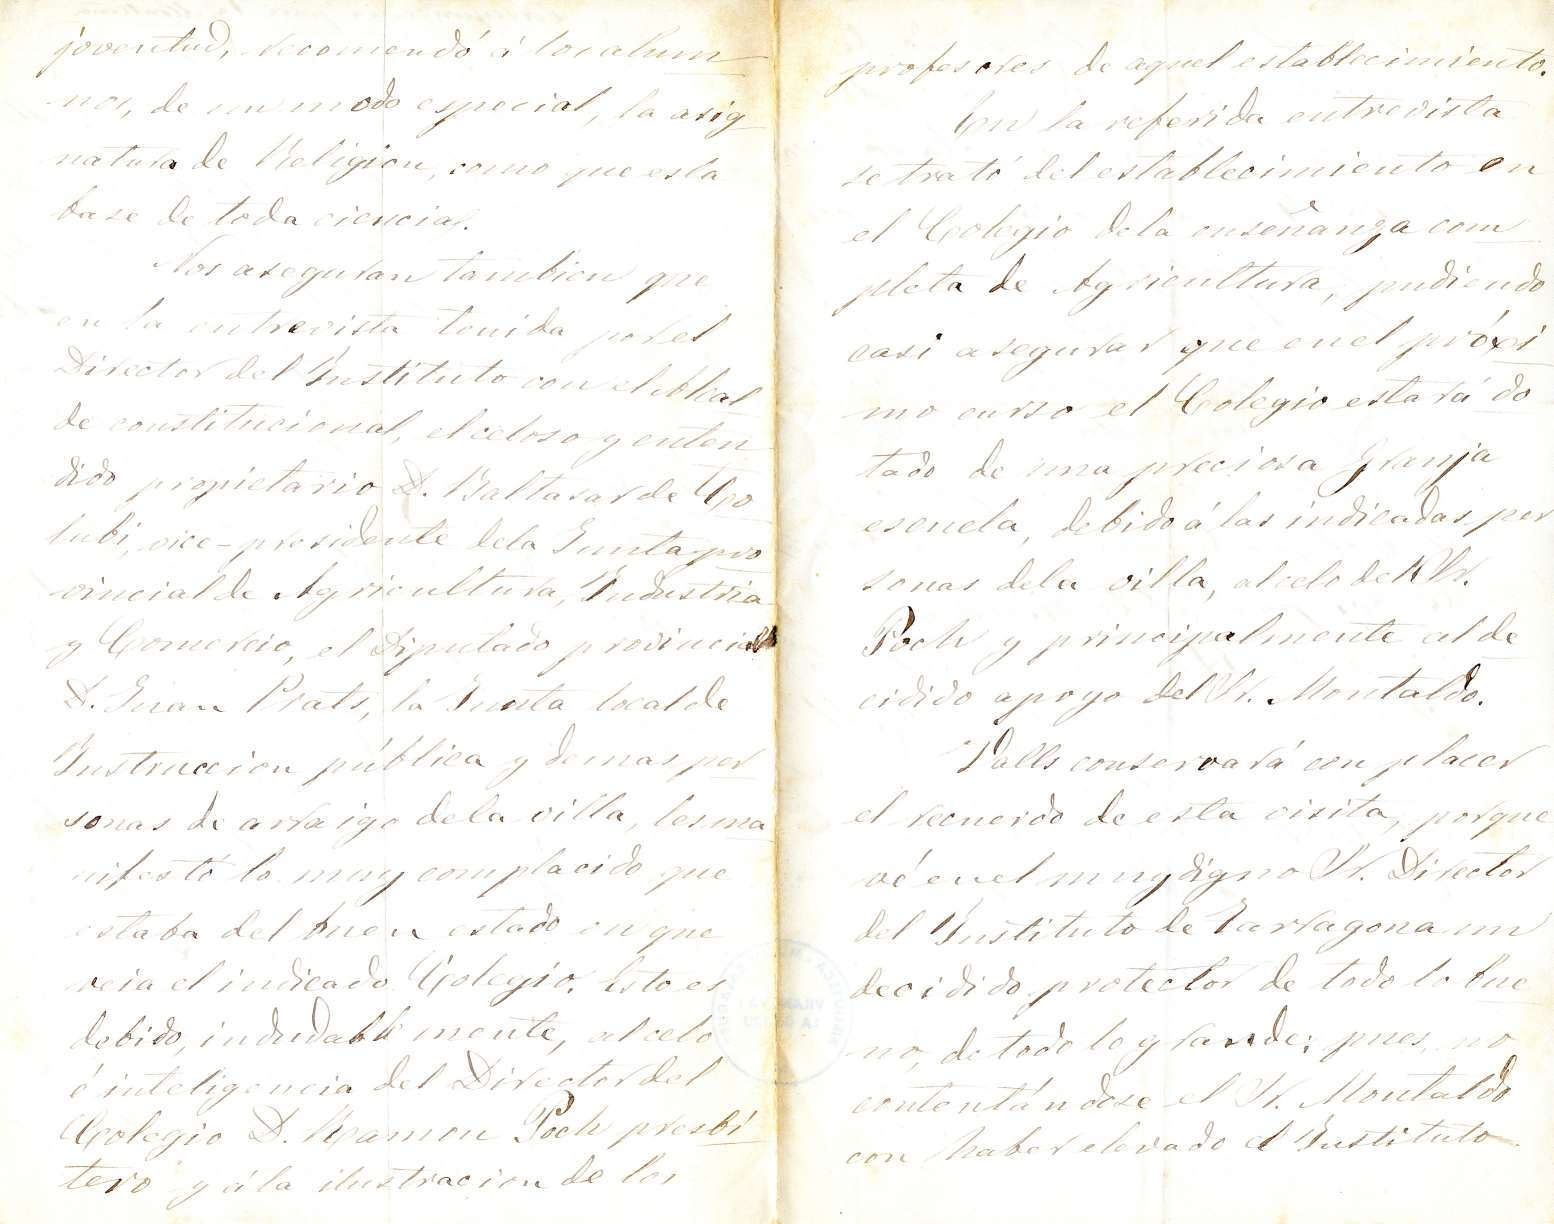 joventud, recomendó á los alum
nos, de un modo especial, la asig
natura de Religion, como que es la
base de toda ciencia.
Nos aseguran tambien que
en la entrevista tenida por el
Director del Instituto con el Alcal
de constitucional, el celoso y enten
dido propietario D. Baltasar de To
lubí, vice-presidente de la Junta pro
vincial de Agricultura, Industria
y Comercio, el Diputado provincial
D. Juan Prats, la Junta local de
Instruccion pública y demas per
sonas de arraigo de la villa, les ma
nifestó lo muy complacido que
estaba del buen estado en que
veia el indicado Colegio. Esto es
debido, indudablemente, al celo
é inteligencia del Director del
Colegio D. Ramon Poch presbí
tero y á la ilustracion de los
profesores de aquel establecimiento.
En la referida entrevista
se trató del establecimiento en
el Colegio de la enseñanza com
pleta de Agricultura, pudiendo
casi asegurar que en el próxi
mo curso el Colegio estará do
tado de una preciosa Granja
escuela, debido á las indicadas per
sonas de la villa, al celo del Sr.
Poch y principalmente al de
cidido apoyo del Sr. Montaldo.
Valls conservará con placer
el recuerdo de esta visita, porque
vé en el muy digno Sr. Director
del Instituto de Tarragona un
decidido protector de todo lo bue
no, de todo lo grande; pues, no
contentándose el Sr. Montaldo
con haber elevado el Instituto